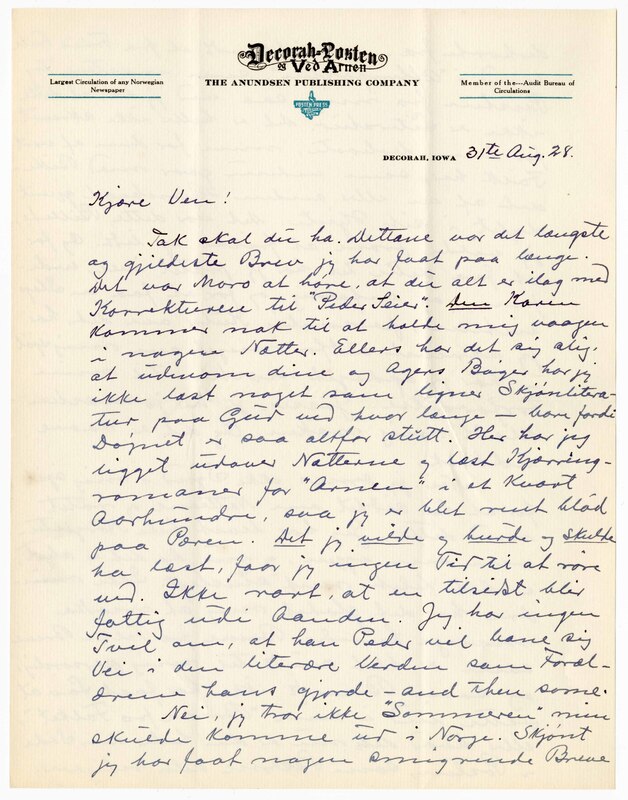 Decorah-Posten
Ved Arnen
Largest Circulation of any Norwegian
Newspaper
THE ANUNDSEN PUBLISHING COMPANY
Member of the---Audit Bureau of
Circulations
POSTEN PRESS
DECORAH, IOWA 31te Aug. 28.
Kjære Ven!
Tak skal du ha. Dettane var det længste
og gjildeste Brev jeg har faat paa længe.
Det var Moro at høre, at du alt er ilag med
Korrekturen til "Peder Seier". Den Karen
kommer nok til at holde mig vaagen
i nogen Nætter. Ellers har det sig slig,
at udenom dine og Agers Bøger har jeg
ikke læst noget som ligner Skjønlitera-
tur paa Gud ved hvor længe — bare fordi
Døgnet er saa altfor stutt. Her har jeg
ligget udover Nætterne og læst Kjærring-
romaner for "Arnen" i et Kvart
Aarhundre, saa jeg er blet rent blød
paa Pæren. Det jeg vilde og burde og skulde
ha læst, faar jeg ingen Tid til at røre
ved. Ikke rart, at en tilsidst blir
fattig udi Aanden. Jeg har ingen
Tvil om, at han Peder vil bane sig
Vei i den literære Verden som Foræl-
drene hans gjorde – and then some.
Nei, jeg tror ikke "Sommeren" min
skulde komme ud i Norge. Skjønt
jeg har faat nogen smigrende Breve